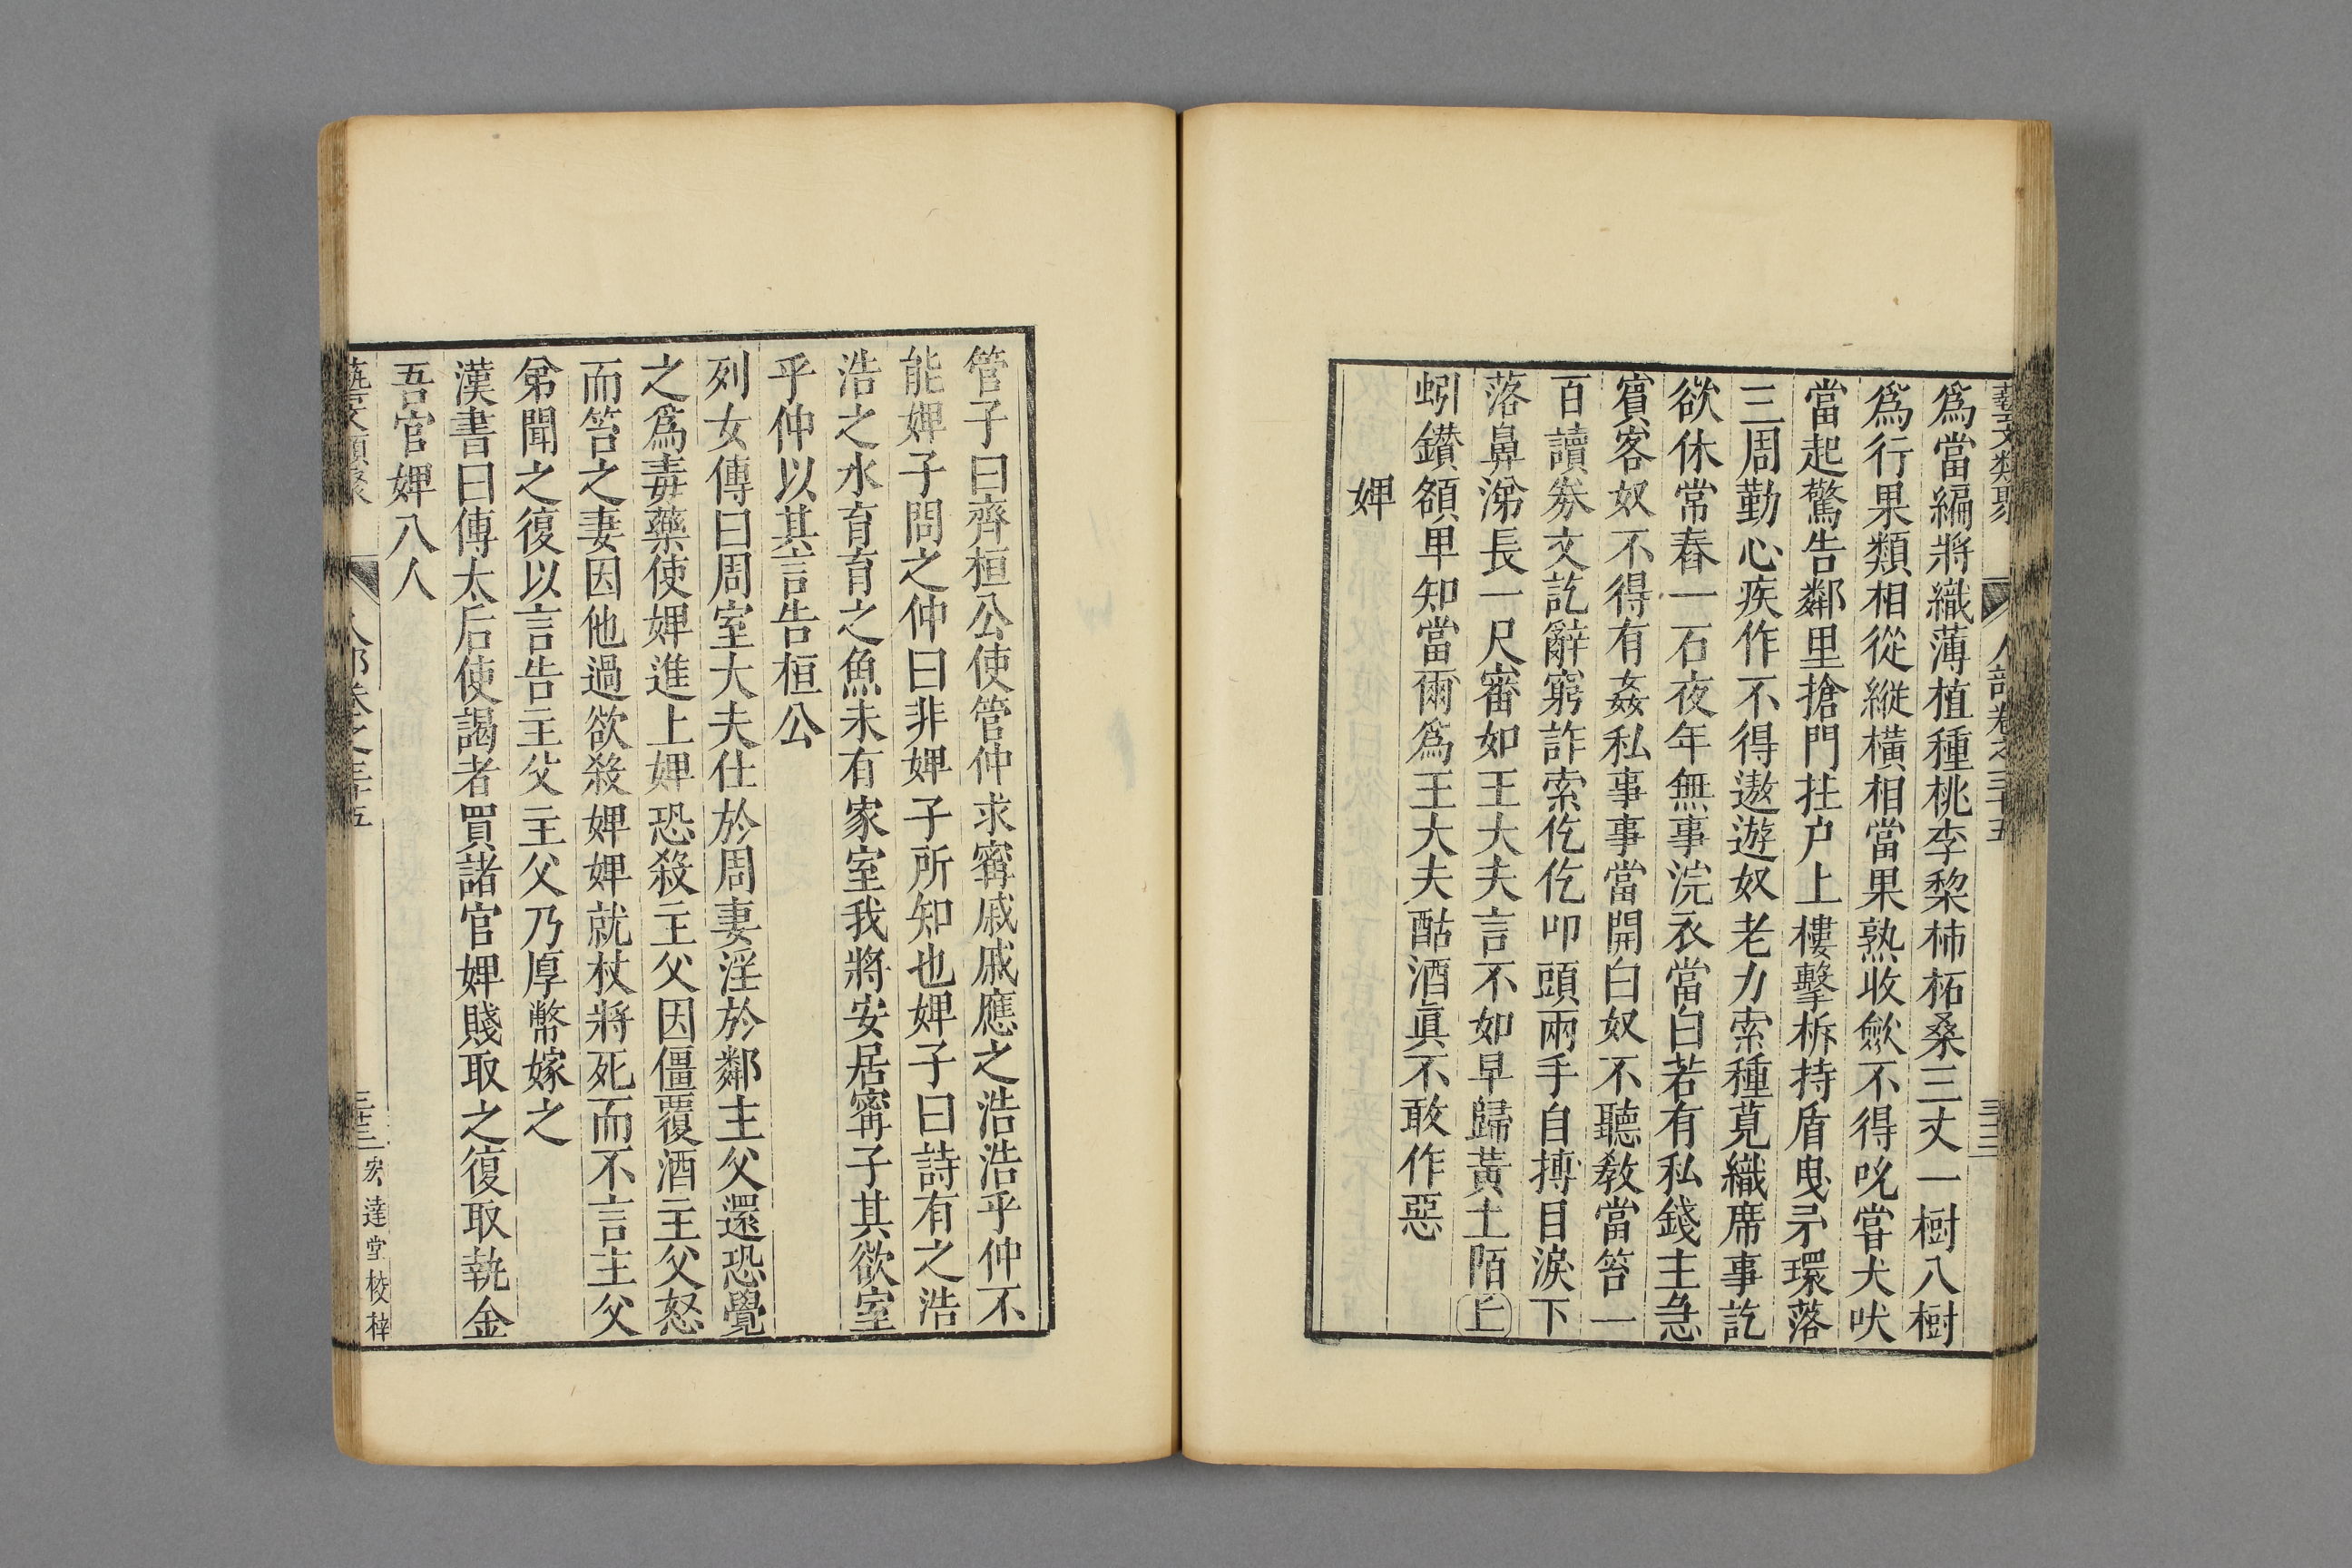 藝文類聚 人部卷之三十五 三三
爲當編將織薄植種桃李棃柿柘桑三丈一樹八樹
爲行果類相從縱橫相當果熟收斂不得吮甞犬吠
當起驚告鄰里搶門拄户上樓擊柝持盾曳矛環落
三周勤心疾作不得遨遊奴老力索種莧織席事訖
欲休常舂一石夜年無事浣衣當白若有私錢主急
賓客奴不得有姦私事事當開白奴不聽教當笞一
百讀券文訖辭窮詐索仡仡叩頭兩手自搏目淚下
落鼻涕長一尺審如王大夫言不如早歸黃土陌上
蚓鑚額早知當爾爲王大夫酤酒眞不敢作惡
婢
管子曰齊桓公使管仲求甯戚戚應之浩浩乎仲不
能婢子問之仲曰非婢子所知也婢子曰詩有之浩
浩之水育育之魚未有家室我將安居甯子其欲室
乎仲以其言告桓公
列女傳曰周室大夫仕於周妻淫於鄰主父還恐覺
之爲毒藥使婢進上婢恐殺主父因僵覆酒主父怒
而笞之妻因他過欲殺婢婢就杖將死而不言主父
弟聞之復以言告主父主父乃厚幣嫁之
漢書曰傅太后使謁者買諸官婢賤取之復取執金
吾官婢八人
藝文類聚 人部卷之三十五 三十三 宏達堂校梓